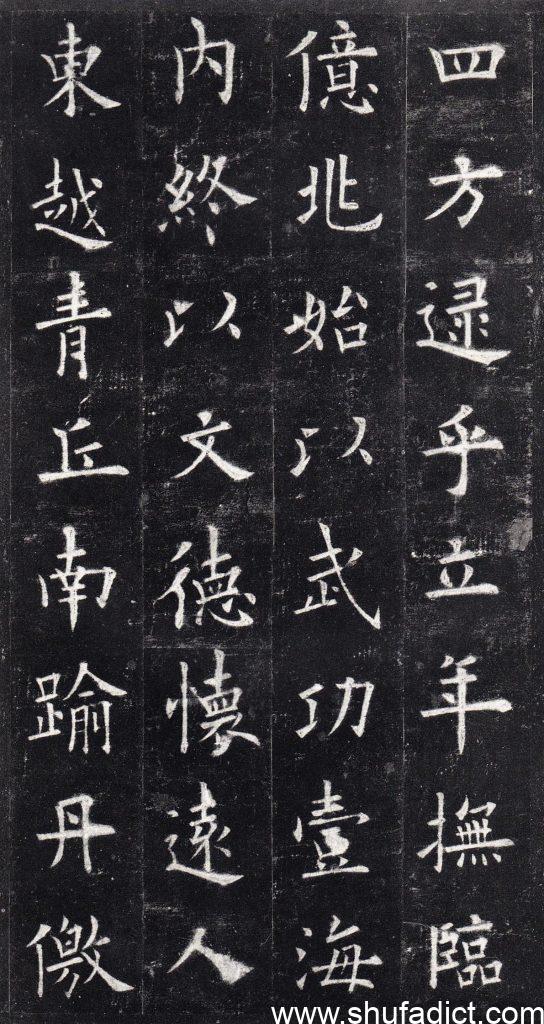 四方逮乎立年撫臨
億兆始以武功壹海
內終以文德懷遠人
東越青丘南踰丹儌
www.shufadict.com